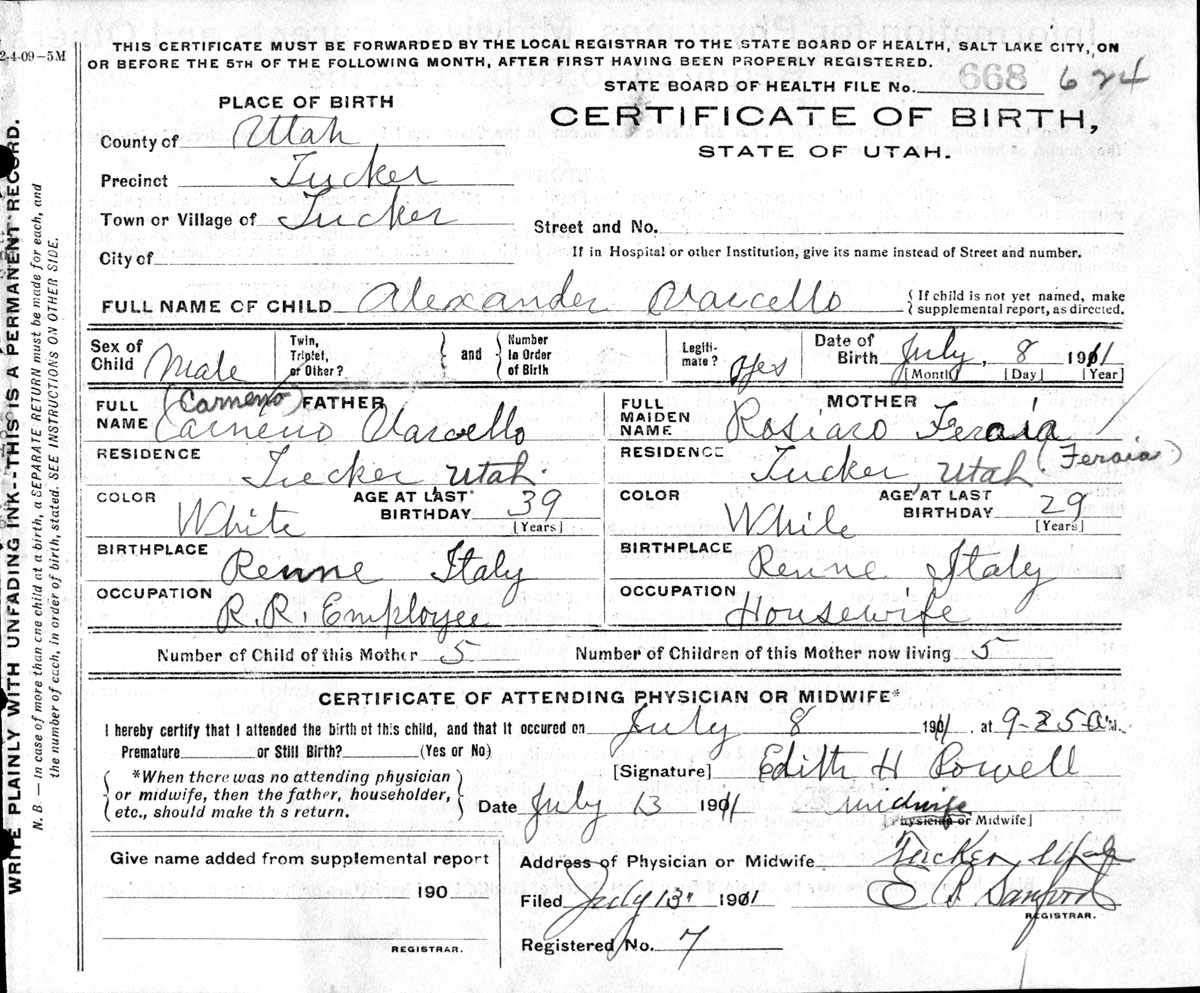 2-4-09-5M
THIS CERTIFICATE MUST BE FORWARDED BY THE LOCAL REGISTRAR TO THE STATE BOARD OF HEALTH, SALT LAKE CITY, ON
OR BEFORE THE 5TH OF THE FOLLOWING MONTH, AFTER FIRST HAVING BEEN PROPERLY REGISTERED.
STATE BOARD OF HEALTH FILE No. 668 624
PLACE OF BIRTH
CERTIFICATE OF BIRTH,
STATE OF UTAH.
County of Utah
Precinct Tucker
Town or Village of Tucker
Street and No.
City of
If in Hospital or other Institution, give its name instead of Street and number.
FULL NAME OF CHILD Alexander Varcello
{If child is not yet named, make
supplemental report, as directed.
Sex of Child Male
Twin, Triplet, or Other? } and { Number In Order of Birth
Legiti-mate? Yes
Date of Birth July, 8 1911
[Month] [Day] [Year]
FULL NAME (Carmeno) FATHER
Carmeno Varcello
FULL MAIDEN NAME MOTHER
Rosiaro Feraia
(Feraia)
RESIDENCE Tucker Utah.
RESIDENCE Tucker, Utah
COLOR White AGE AT LAST BIRTHDAY 39 [Years]
COLOR White AGE AT LAST BIRTHDAY 29 [Years]
BIRTHPLACE Renne Italy
BIRTHPLACE Renne Italy
OCCUPATION R.R. Employee
OCCUPATION Housewife
Number of Child of this Mother 5 Number of Children of this Mother now living 5
CERTIFICATE OF ATTENDING PHYSICIAN OR MIDWIFE*
I hereby certify that I attended the birth of this child, and that it occured on July 8 1911 at 9-25 a M.
Premature or Still Birth? (Yes or No)
[Signature] Edith H Powell
{*When there was no attending physician
or midwife, then the father, householder,
etc., should make th s return.}
Date July 13 1901 midwife
[Physician or Midwife]
Give name added from supplemental report
190
REGISTRAR.
Address of Physician or Midwife Tucker Utah
Filed July 13, 1901 E P Sanford
REGISTRAR.
Registered No. 7
WRITE PLAINLY WITH UNFADING INK--THIS IS A PERMANENT RECORD.
N. B. — In case of more than one child at a birth, a SEPARATE RETURN must be made for each, and
the number of each, in order of birth, stated. SEE INSTRUCTIONS ON OTHER SIDE.